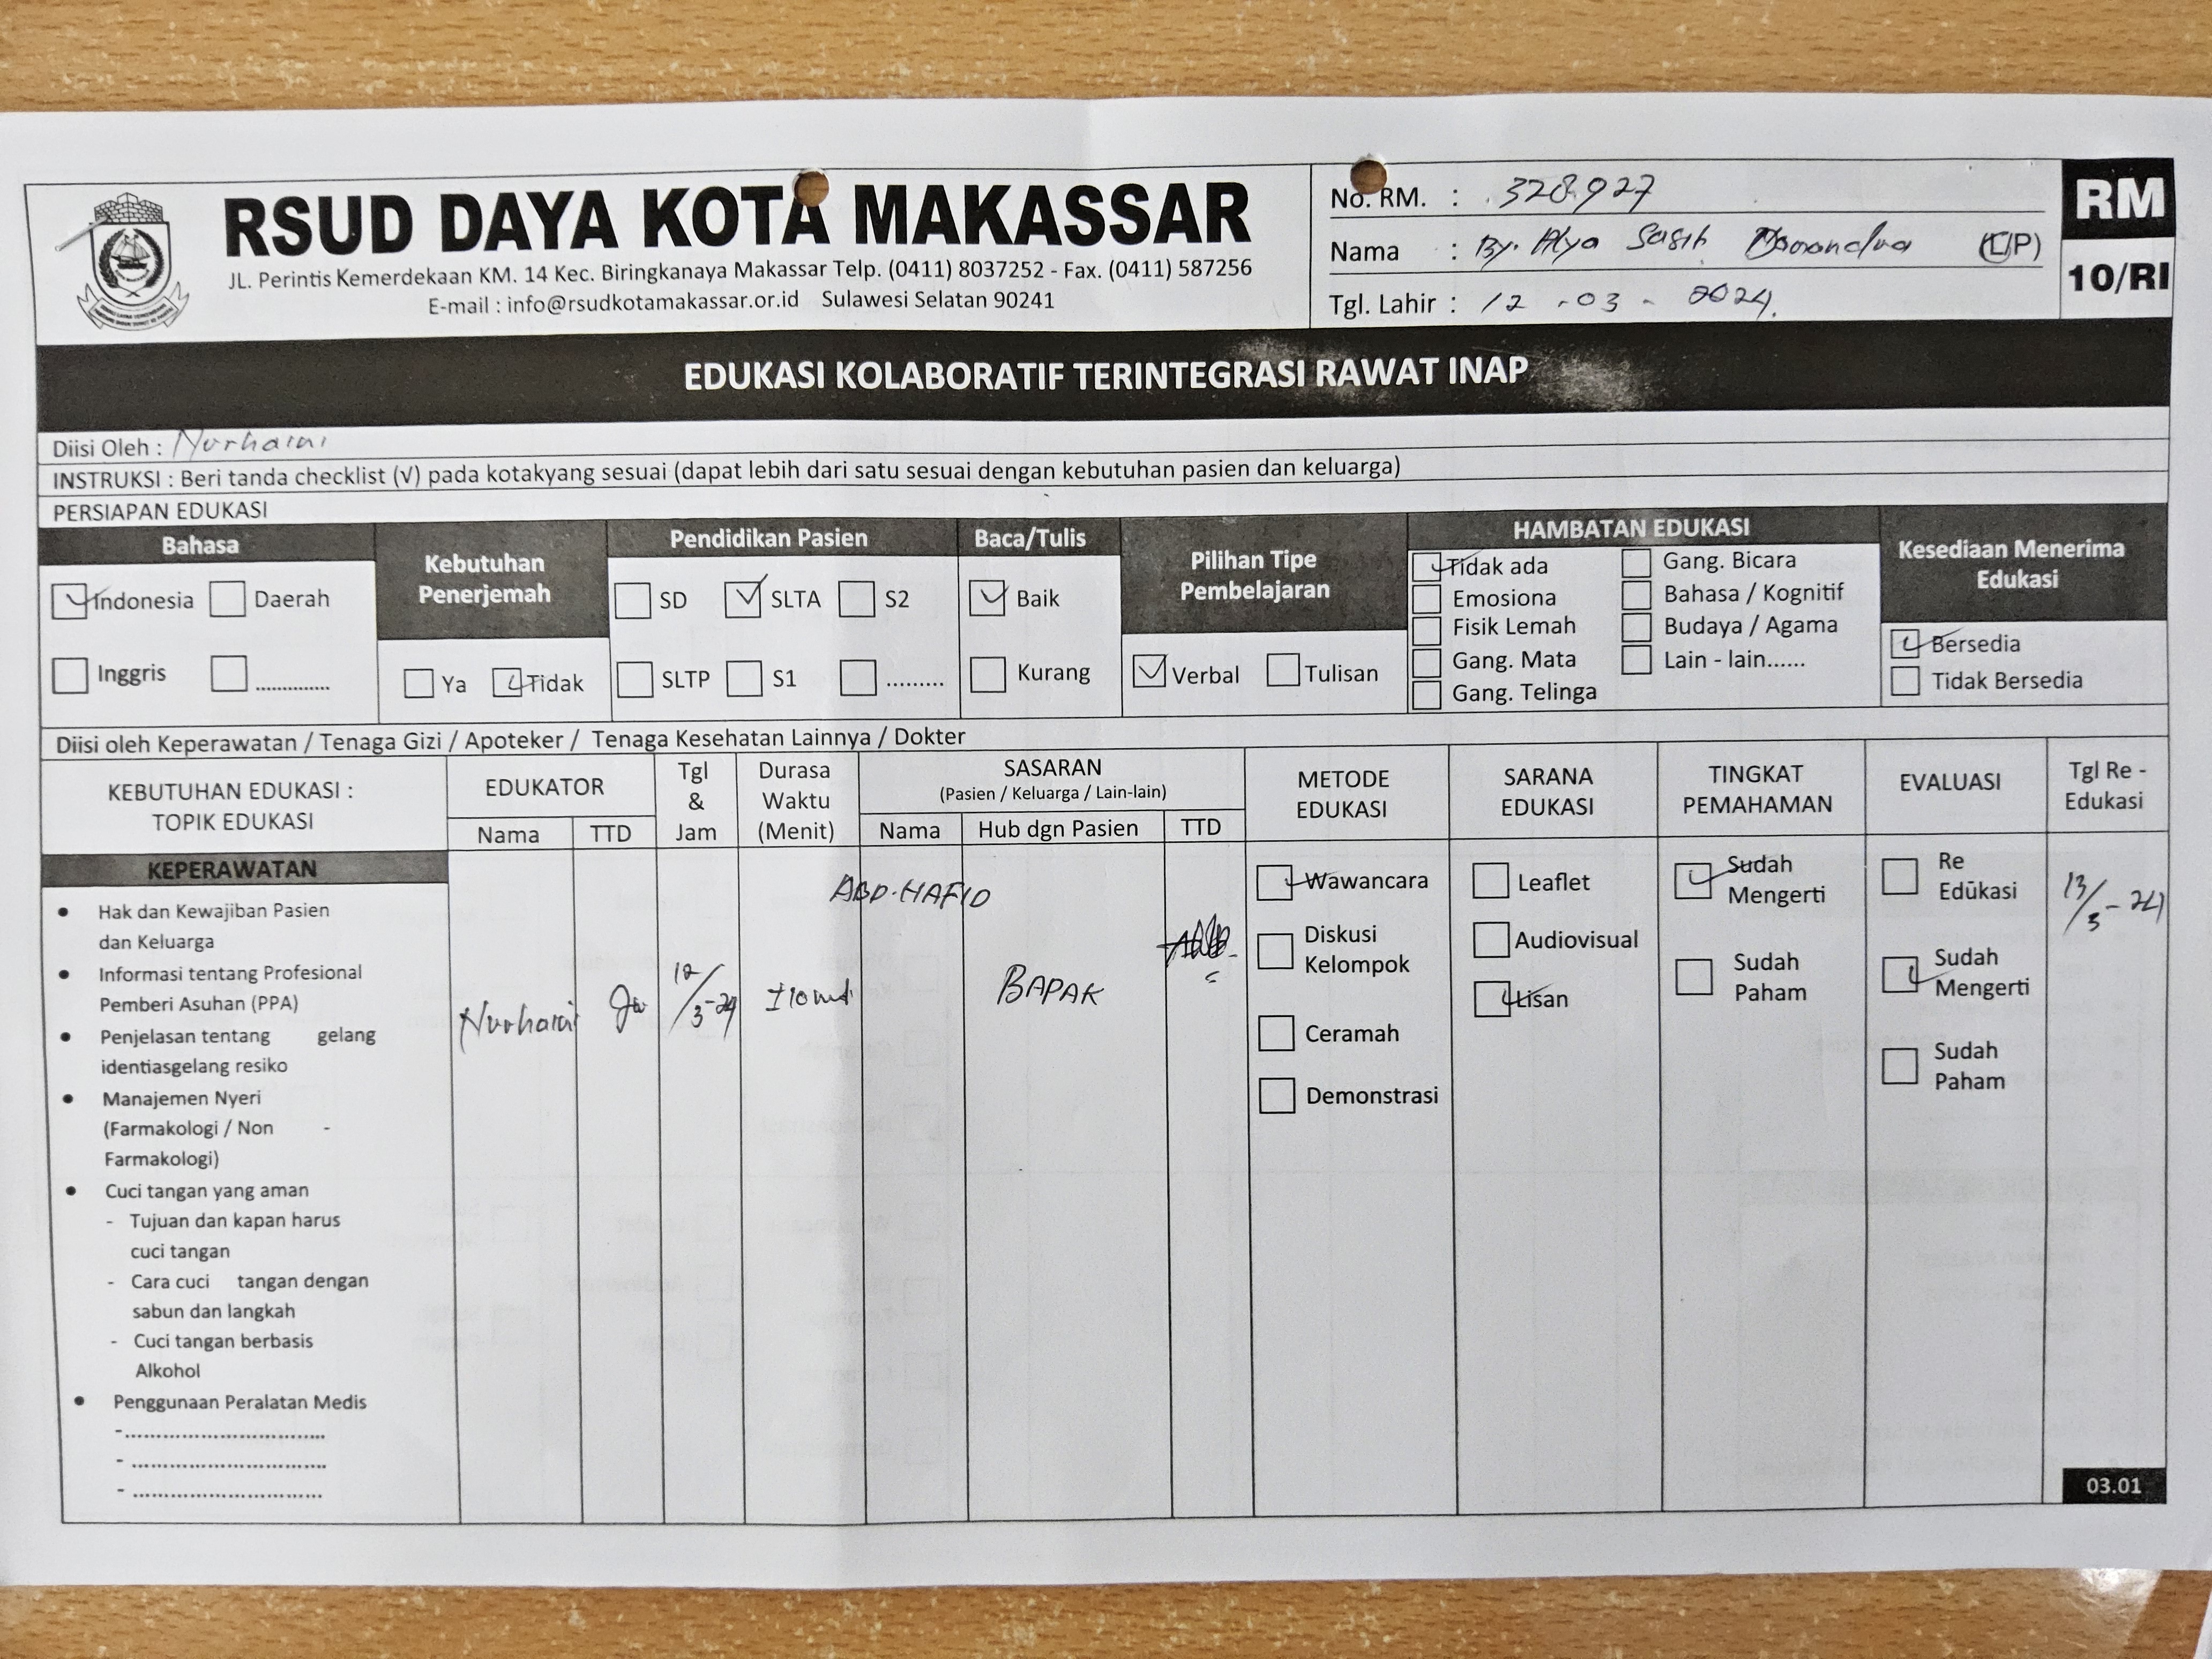 RSUD DAYA KOTA MAKASSAR
JL. Perintis Kemerdekaan KM. 14 Kec. Biringkanaya Makassar Telp. (0411) 8037252 - Fax. (0411) 587256
E-mail : info@rsudkotamakassar.or.id Sulawesi Selatan 90241
No. RM. : 328927
Nama : By. Alya Sasih (L/P)
Tgl. Lahir : 12 - 03 - 2024
RM
10/RI
EDUKASI KOLABORATIF TERINTEGRASI RAWAT INAP
Diisi Oleh : Nurhaini
INSTRUKSI : Beri tanda checklist (√) pada kotakyang sesuai (dapat lebih dari satu sesuai dengan kebutuhan pasien dan keluarga)
PERSIAPAN EDUKASI
Bahasa
Indonesia Daerah
Inggris ..............
Kebutuhan
Penerjemah
Ya Tidak
Pendidikan Pasien
SD SLTA S2
SLTP S1 .........
Baca/Tulis
Baik
Kurang
Pilihan Tipe
Pembelajaran
Verbal Tulisan
HAMBATAN EDUKASI
Tidak ada Gang. Bicara
Emosiona Bahasa / Kognitif
Fisik Lemah Budaya / Agama
Gang. Mata Lain - lain......
Gang. Telinga
Kesediaan Menerima
Edukasi
Bersedia
Tidak Bersedia
Diisi oleh Keperawatan / Tenaga Gizi / Apoteker / Tenaga Kesehatan Lainnya / Dokter
KEBUTUHAN EDUKASI :
TOPIK EDUKASI
EDUKATOR
Nama TTD
Tgl
&
Jam
Durasa
Waktu
(Menit)
SASARAN
(Pasien / Keluarga / Lain-lain)
Nama Hub dgn Pasien TTD
METODE
EDUKASI
SARANA
EDUKASI
TINGKAT
PEMAHAMAN
EVALUASI
Tgl Re -
Edukasi
KEPERAWATAN
• Hak dan Kewajiban Pasien
dan Keluarga
• Informasi tentang Profesional
Pemberi Asuhan (PPA)
• Penjelasan tentang gelang
identiasgelang resiko
• Manajemen Nyeri
(Farmakologi / Non -
Farmakologi)
• Cuci tangan yang aman
- Tujuan dan kapan harus
cuci tangan
- Cara cuci tangan dengan
sabun dan langkah
- Cuci tangan berbasis
Alkohol
• Penggunaan Peralatan Medis
-..............................
- .............................
- ............................
Nurhaini
12/3-24
ABD.HAFID
BAPAK
Wawancara
Diskusi
Kelompok
Ceramah
Demonstrasi
Leaflet
Audiovisual
Lisan
Sudah
Mengerti
Sudah
Paham
Re
Edūkasi
Sudah
Mengerti
Sudah
Paham
13/3-24
03.01